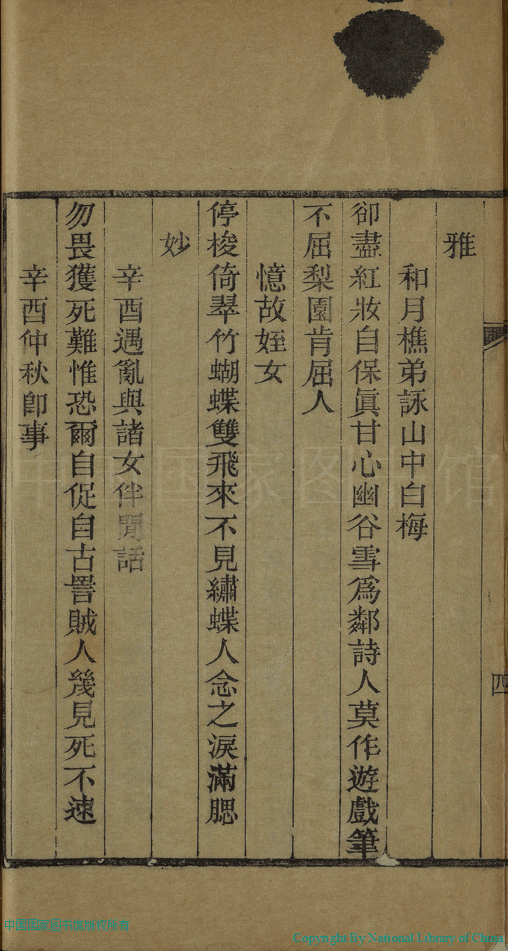 雅
和月樵弟詠山中白梅
卻盡紅妝自保眞甘心幽谷雪爲鄰詩人莫作遊戲筆
不屈梨園肯屈人
憶故姪女
停梭倚翠竹蝴蝶雙飛來不見繡蝶人念之淚滿腮
妙
辛酉遇亂與諸女伴閒話
勿畏獲死難惟恐爾自促自古詈賊人幾見死不速
辛酉仲秋卽事
四
中国国家图书馆
Copyright by National Library of China